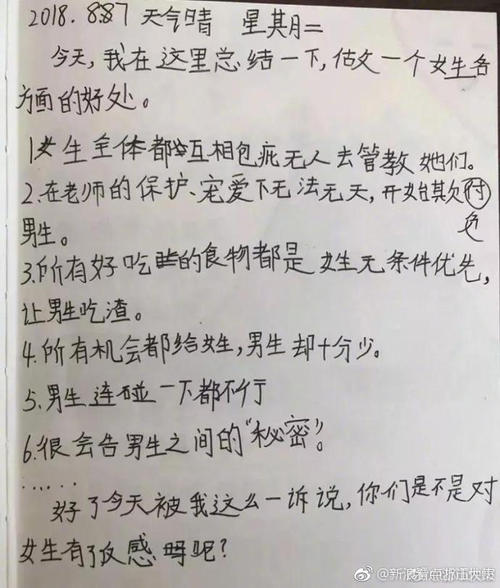 2018.8.7 天气晴 星期二
今天,我在这里总结一下,做一个女生各
方面的好处。
1女生全体都互相包庇无人去管教她们。
2.在老师的保护、宠爱下无法无天,开始其次
男生。
3.所有好吃的食物都是女生无条件优先,
让男生吃渣。
4.所有机会都给女生,男生却十分少。
5.男生连碰一下都不行
6.很会告男生之间的“秘密”。
……
好了今天被我这么一诉说,你们是不是对
女生有了反感呢?
@新浪